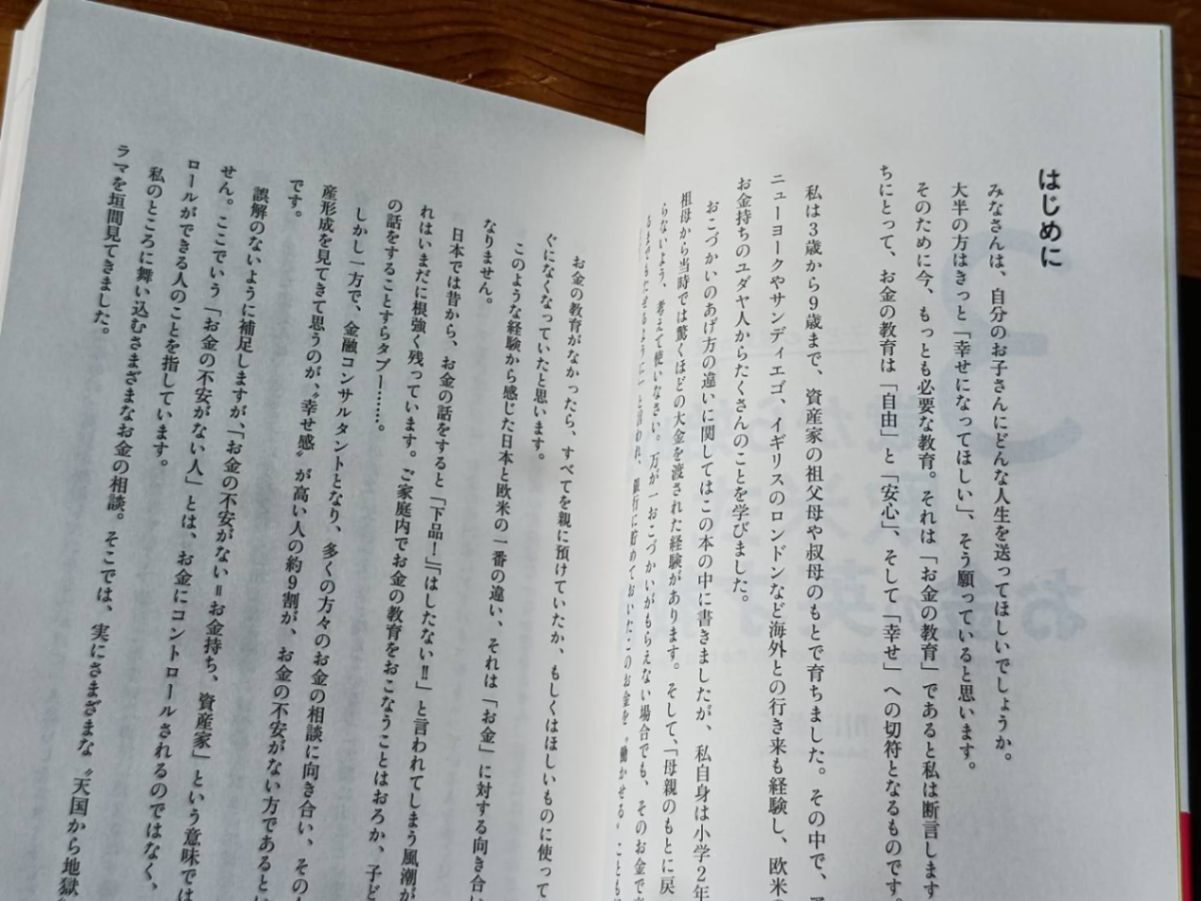 はじめに
みなさんは、自分のお子さんにどんな人生を送ってほしいでしょうか。
大半の方はきっと「幸せになってほしい」、そう願っていると思います。
そのために今、もっとも必要な教育。それは「お金の教育」であると私は断言します
ちにとって、お金の教育は「自由」と「安心」、そして「幸せ」への切符となるものです。
私は3歳から9歳まで、資産家の祖父母や叔母のもとで育ちました。その中で、ア
ニューヨークやサンディエゴ、イギリスのロンドンなど海外との行き来も経験し、欧米の
お金持ちのユダヤ人からたくさんのことを学びました。
おこづかいのあげ方の違いに関してはこの本の中に書きましたが、私自身は小学2年
祖母から当時では驚くほどの大金を渡された経験があります。そして、「母親のもとに戻
らないよう、考えて使いなさい。万が一おこづかいがもらえない場合でも、そのお金で
るまでもたせるように」と言われ、銀行に貯めておいたこのお金を〝働かせる〟ことも
お金の教育がなかったら、すべてを親に預けていたか、もしくはほしいものに使って
ぐになくなっていたと思います。
このような経験から感じた日本と欧米の一番の違い、それは「お金」に対する向き合い
なりません。
日本では昔から、お金の話をすると「下品!」「はしたない!!」と言われてしまう風潮が
れはいまだに根強く残っています。ご家庭内でお金の教育をおこなうことはおろか、子ど
の話をすることすらタブー……。
しかし一方で、金融コンサルタントとなり、多くの方々のお金の相談に向き合い、その
産形成を見てきて思うのが、〝幸せ感〟が高い人の約9割が、お金の不安がない方であると
です。
誤解のないように補足しますが、「お金の不安がない=お金持ち、資産家」という意味では
せん。ここでいう「お金の不安がない人」とは、お金にコントロールされるのではなく、
ロールができる人のことを指しています。
私のところに舞い込むさまざまなお金の相談。そこでは、実にさまざまな〝天国から地獄
ラマを垣間見てきました。